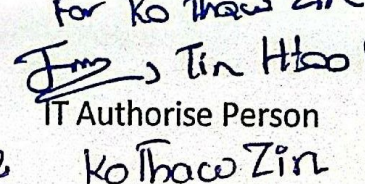 For Ko Thaw Zin
, Tin Htoo
IT Authorise Person
Ko Thaw Zin